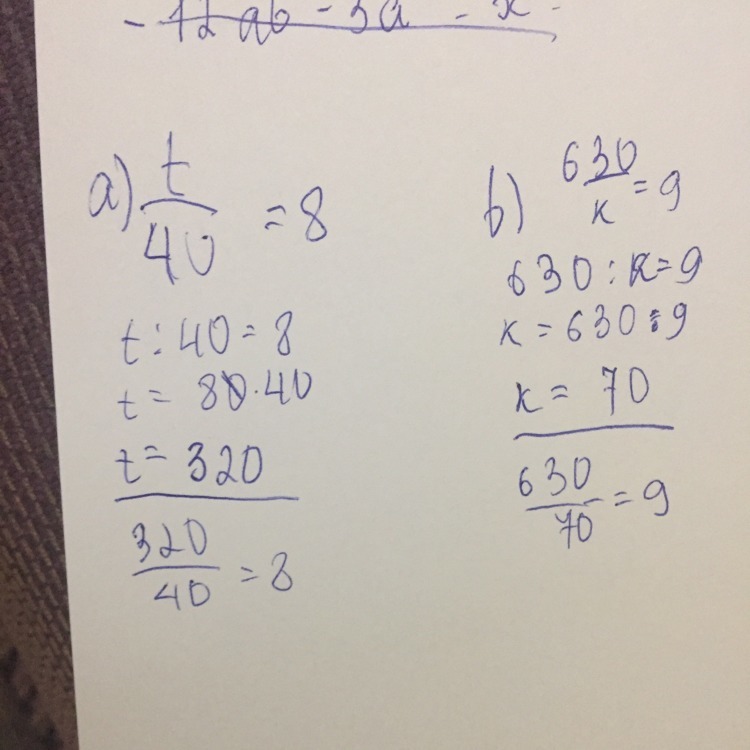 - 12ab - 3a - x
a) t/40 = 8
t : 40 = 8
t = 8 · 40
t = 320
320/40 = 8
b) 630/k = 9
630 : k = 9
k = 630 : 9
k = 70
630/70 = 9